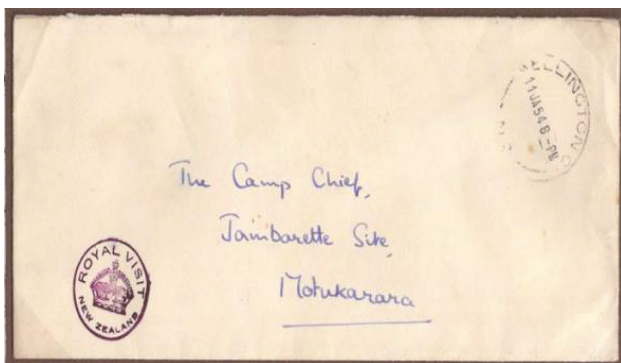 WELLINGTON C
11 JA 54 8 - PM
The Camp Chief,
Jambarette Site,
Motukarara
ROYAL VISIT
NEW ZEALAND